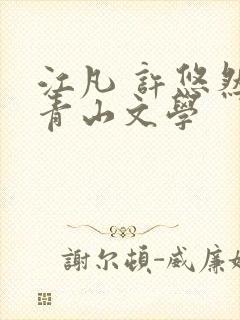 江凡 許悠然
青山文學
謝尔頓-威廉